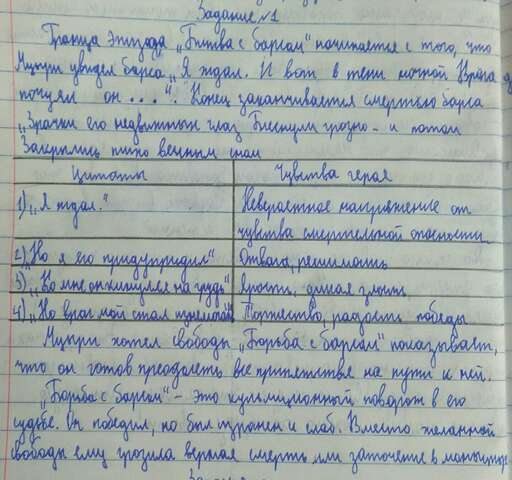 Задание №1
Граница эпизода „Битва с барсом" начинается с того, что
Мцыри увидел барса „Я ждал. И вот в тени ночной Врага
почуял он ...". Конец заканчивается смертью барса
„Зрачки его недвижных глаз Блеснули грозно - и потом
Закрылись тихо вечным сном
Цитаты Чувства героя
1) „Я ждал." Невероятное напряжение от
чувства смертельной опасности
2) „Но я его предупредил" Отвага, решимость
3) „Ко мне он кинулся на грудь" Ярость, злость
4) „Но враг мой стал изнемогать" Торжество, радость победы
Мцыри хотел свободы „Борьба с барсом" показывает,
что он готов преодолеть все препятствие на пути к ней.
„Борьба с барсом" - это кульмиционный поворот в его
судьбе. Он победил, но был изранен и слаб. Вместо желанной
свободы ему грозила верная смерть или заточение в монастыре